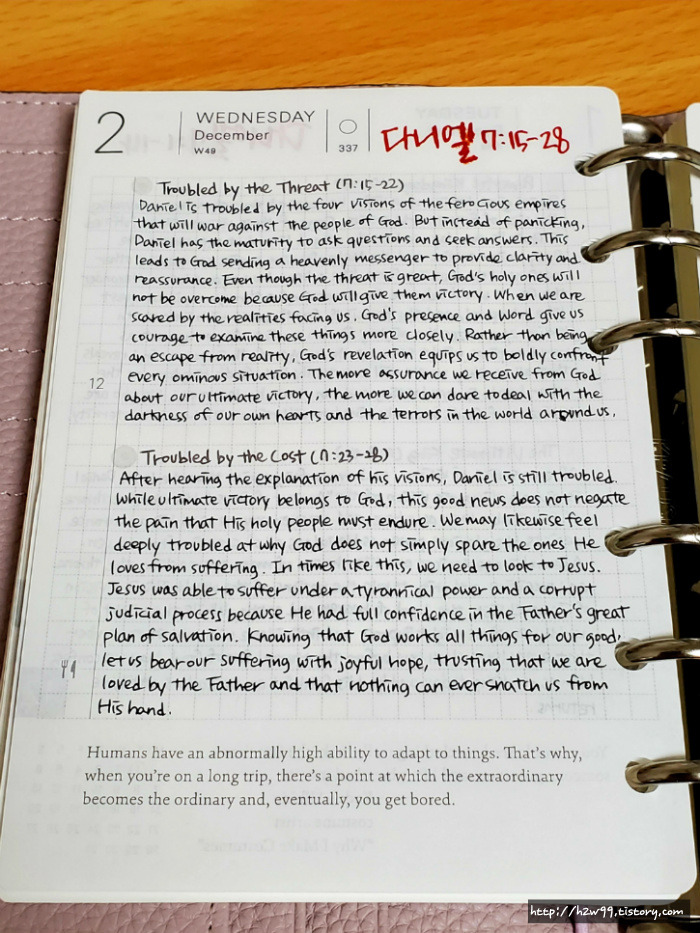 2
WEDNESDAY
December
W49
337
다니엘 7:15-28
Troubled by the Threat (7:15-22)
Daniel is troubled by the four visions of the ferocious empires
that will war against the people of God. But instead of panicking,
Daniel has the maturity to ask questions and seek answers. This
leads to God sending a heavenly messenger to provide clarity and
reassurance. Even though the threat is great, God's holy ones will
not be overcome because God will give them victory. When we are
scared by the realities facing us. God's presence and Word give us
courage to examine these things more closely. Rather than being
an escape from reality, God's revelation equips us to boldly confront
12
every ominous situation. The more assurance we receive from God
about our ultimate victory, the more we can dare to deal with the
darkness of our own hearts and the terrors in the world around us.
Troubled by the Cost (7:23-28)
After hearing the explanation of his visions, Daniel is still troubled.
While ultimate victory belongs to God, this good news does not negate
the pain that His holy people must endure. We may likewise feel
deeply troubled at why God does not simply spare the ones He
loves from suffering. In times like this, we need to look to Jesus.
Jesus was able to suffer under a tyrannical power and a corrupt
judicial process because He had full confidence in the Father's great
plan of salvation. Knowing that God works all things for our good,
let us bear our suffering with joyful hope, trusting that we are
loved by the Father and that nothing can ever snatch us from
His hand.
Humans have an abnormally high ability to adapt to things. That's why,
when you're on a long trip, there's a point at which the extraordinary
becomes the ordinary and, eventually, you get bored.
http://h2w99.tistory.com